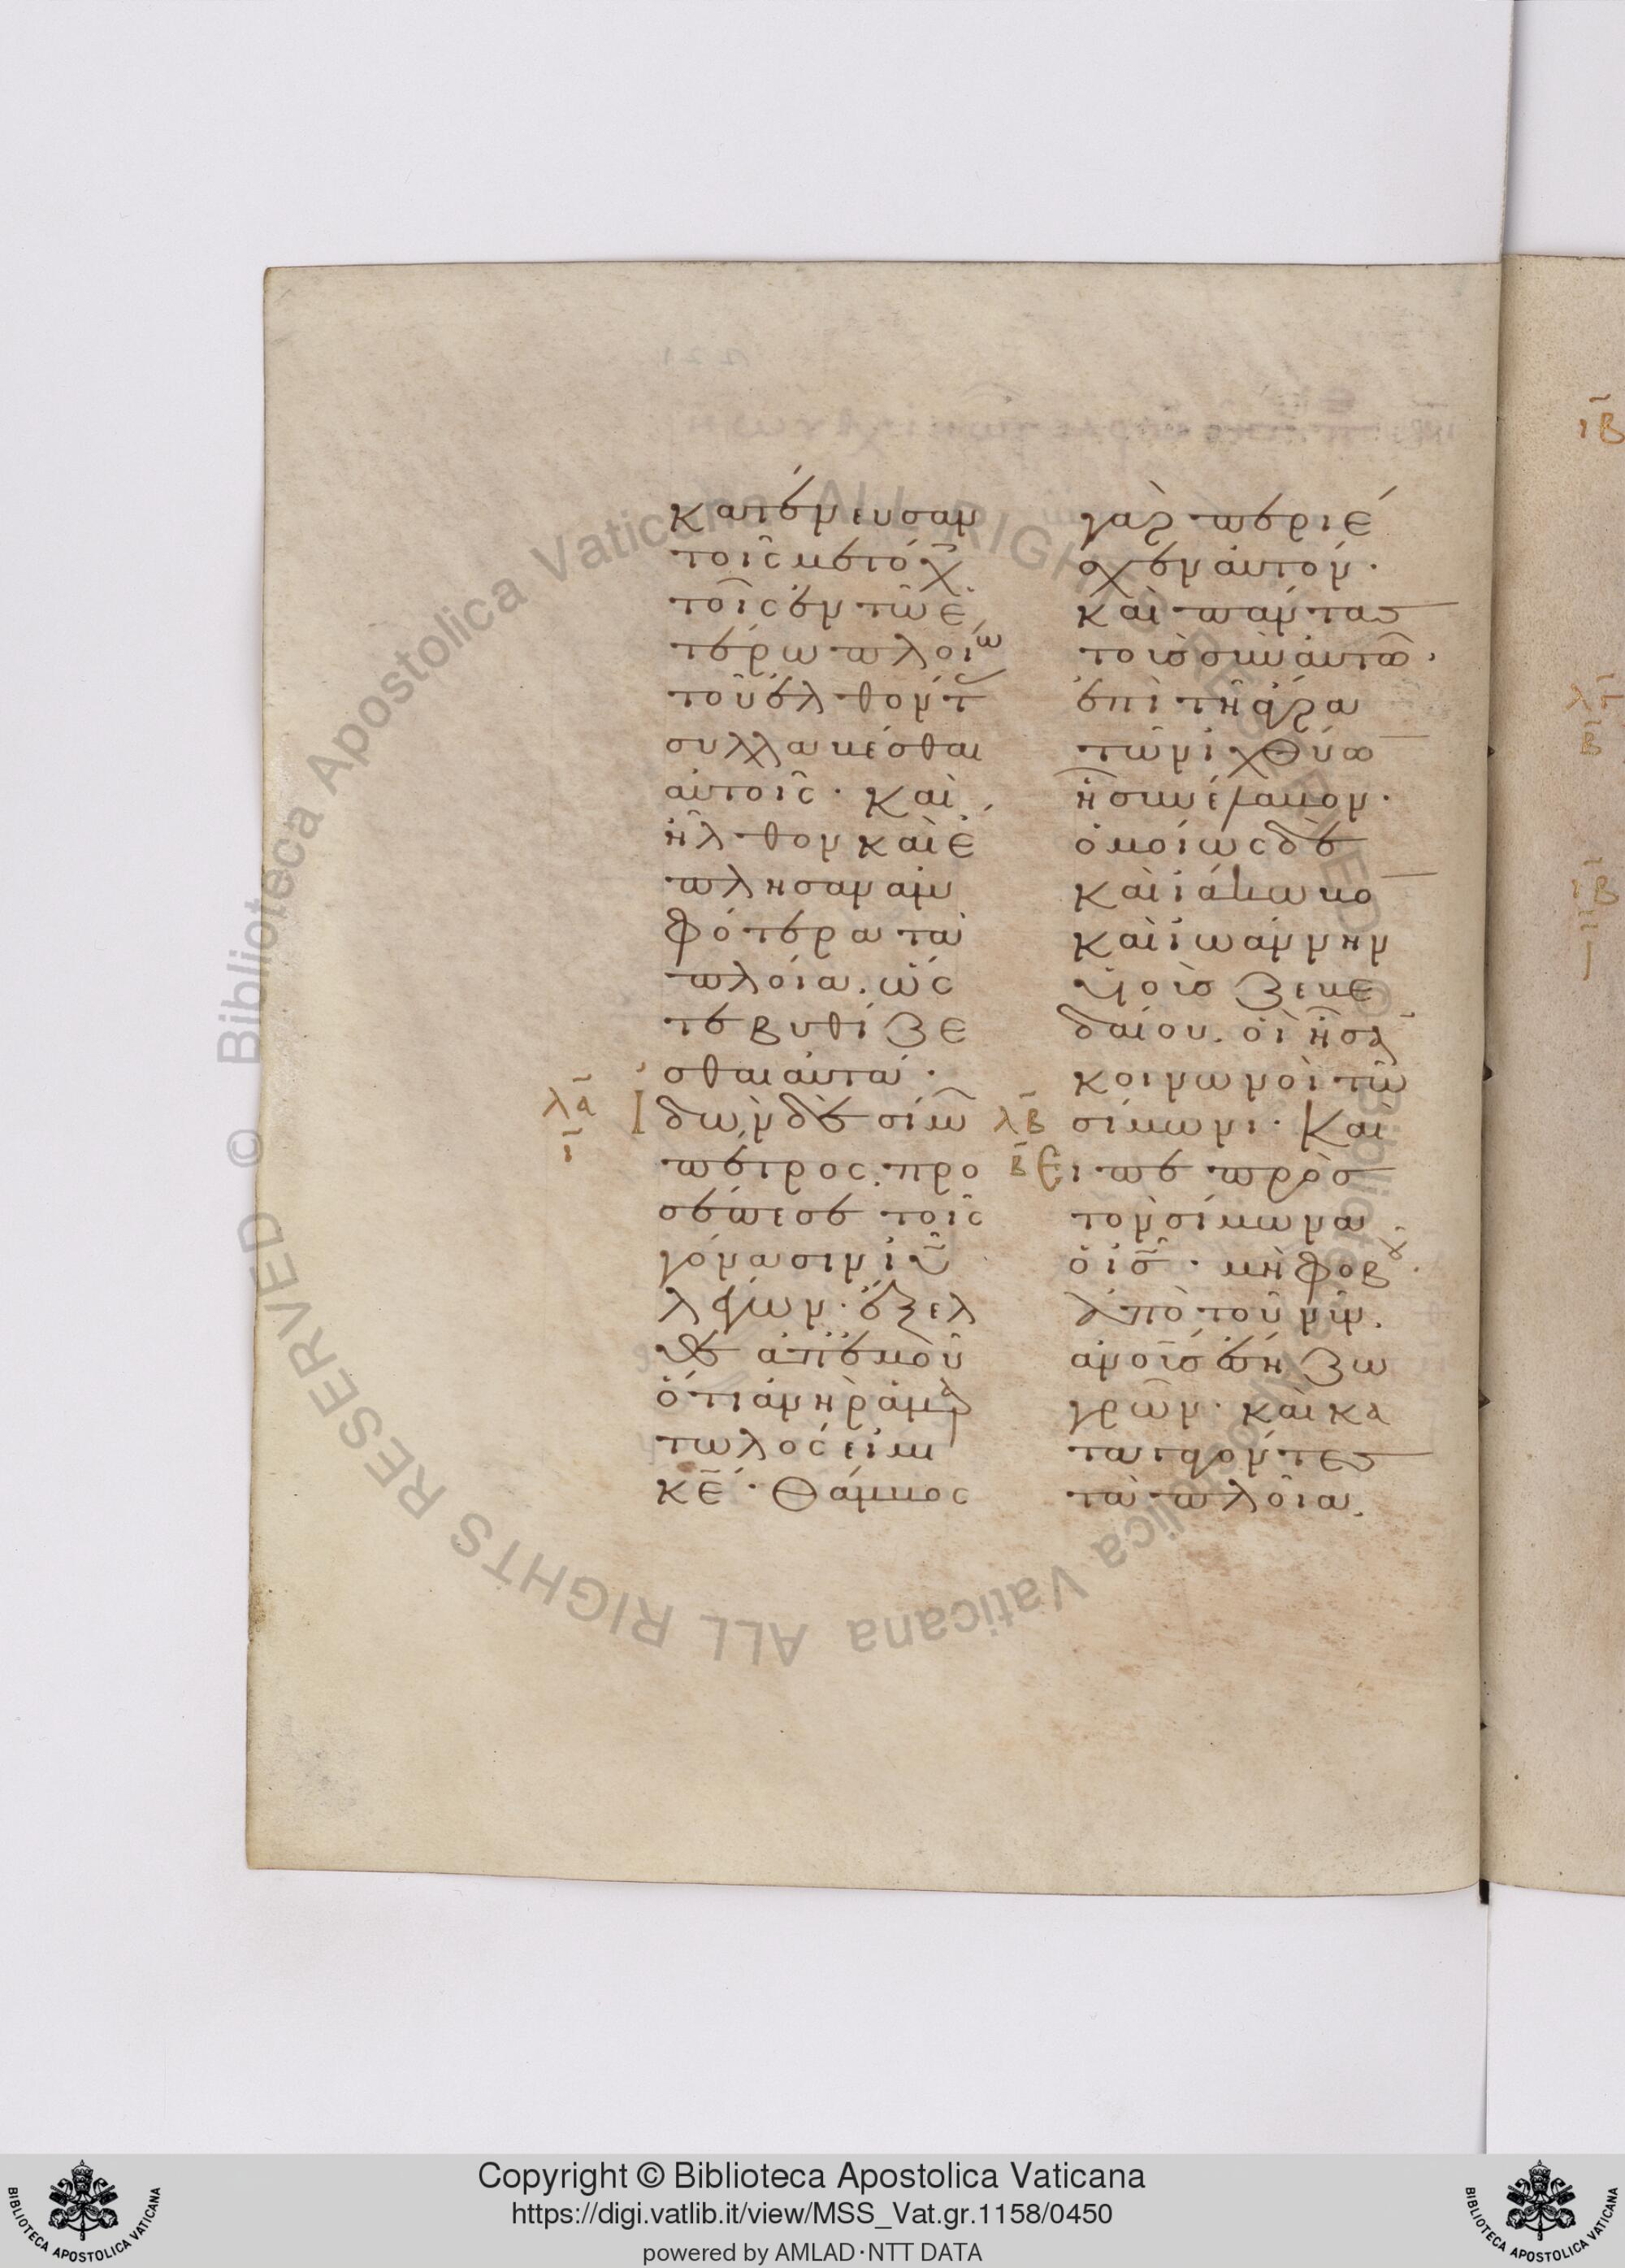 κατένευσαν
τοῖς μετόχ
τοῖς ἐν τῶ ἑ
τέρω πλοίω
τοῦ ἐλθόντ
συλλαβέσθαι
αὐτοῖς· καὶ
ἦλθον καὶ ἔ
πλησαν ἀμ
φότερα τὰ
πλοῖα. ὥς
τε βυθίζε
σθαι αὐτά·
λα Ἰδὼν δὲ σίμω
ι πέτρος. προ
σέπεσε τοῖς
γόνασιν ιυ
λέγων· ἔξελ
θε ἀπ' ἐμοῦ
ὅτι ἀνὴρ ἁμαρ
τωλός εἰμι
κε· Θάμβος
γὰρ περιέ
σχεν αὐτὸν·
καὶ πάντας
τοὺς σὺν αὐτῶ·
ἐπὶ τῆ ἄγρα
τῶν ἰχθύω
ἧ συνέλαβον·
ὁμοίως δὲ
καὶ ἰάκωβο
καὶ ἰωάννην
υἱοὺς ζεβε
δαίου. οἳ ἦσα
κοινωνοὶ τῶ
λβ σίμωνι· Καὶ
β εἶπε πρὸς
τὸν σίμωνα
ὁ ις· μὴ φοβοῦ·
ἀπὸ τοῦ νῦν.
ἀνους ἔση ζω
γρῶν· καὶ κα
ταγαγόντες
τὰ πλοῖα.
ιβ
λγ
β
ιβ
ALL RIGHTS RESERVED © Biblioteca Apostolica Vaticana ALL RIGHTS RESERVED © Biblioteca Apostolica Vaticana
Copyright © Biblioteca Apostolica Vaticana
https://digi.vatlib.it/view/MSS_Vat.gr.1158/0450
powered by AMLAD·NTT DATA
BIBLIOTECA APOSTOLICA VATICANA
BIBLIOTECA APOSTOLICA VATICANA